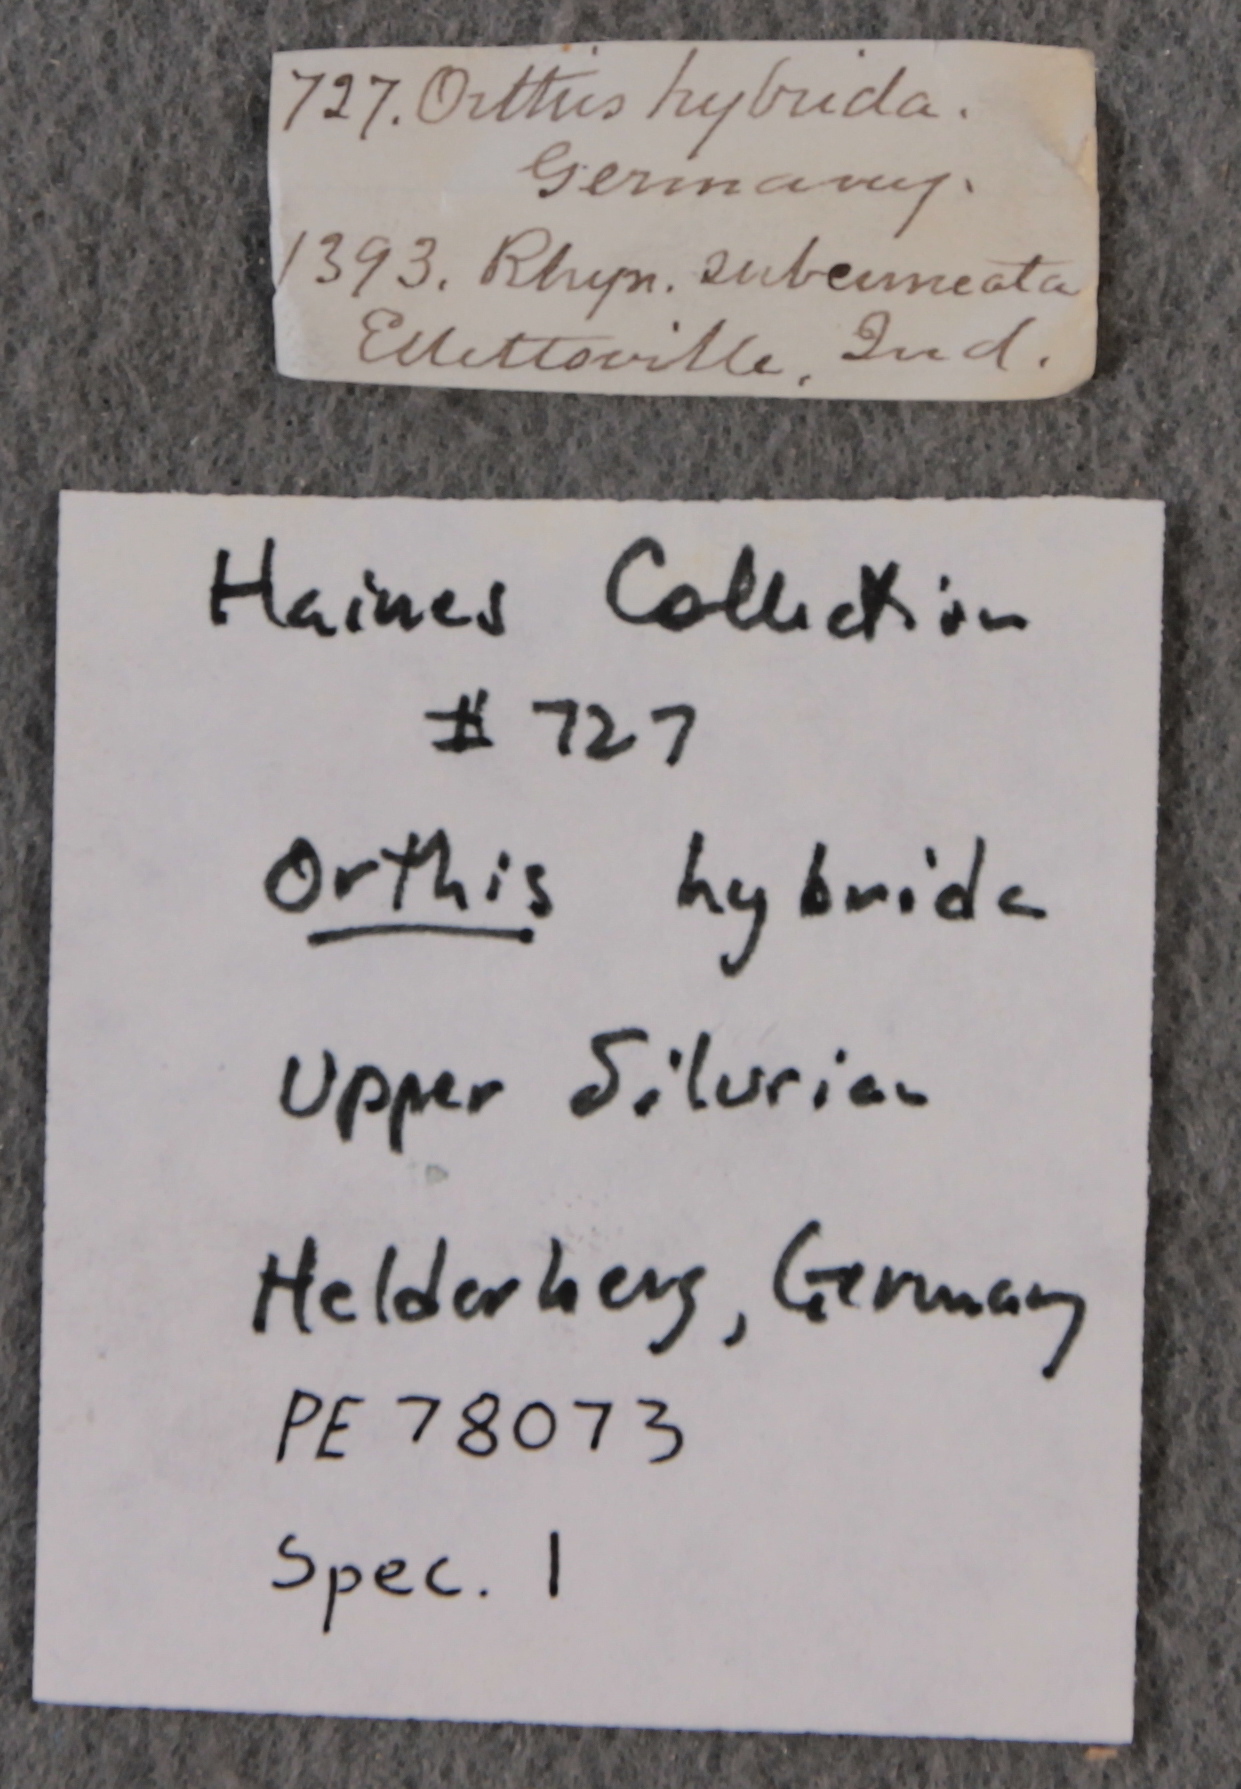 727. Orthis hybrida.
Germany.
1393. Rhyn. subcuneata
Ellettsville, Ind.
Haines Collection
# 727
Orthis hybrida
Upper Silurian
Helderberg, Germany
PE 78073
Spec. 1